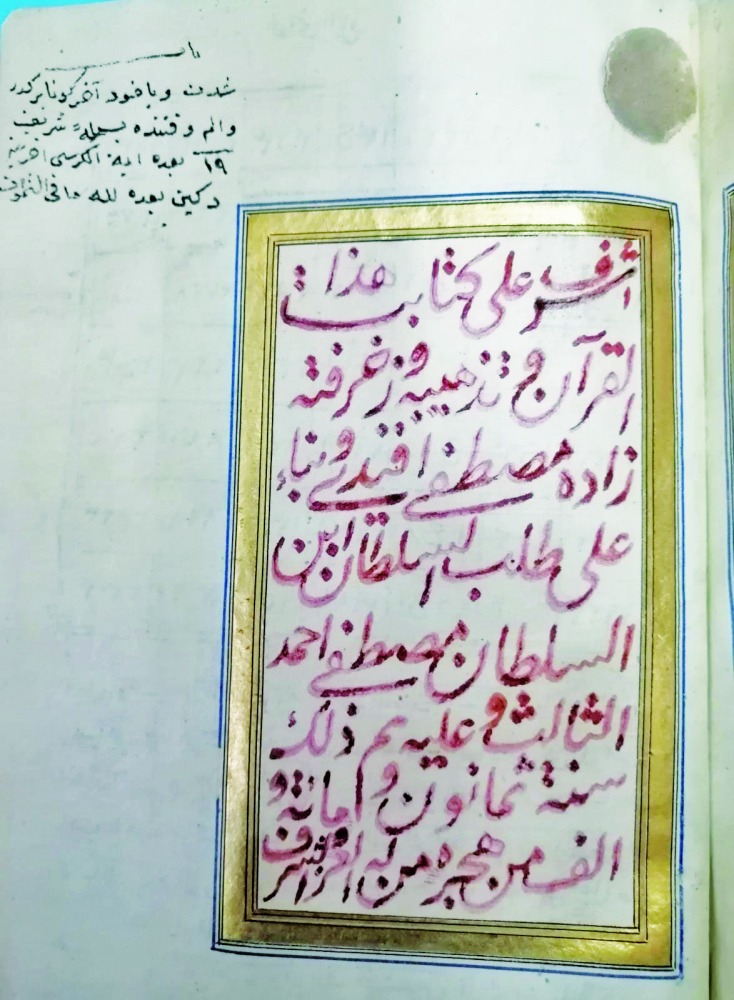 شدن و يا خود آخر كونا بر كدر
والم وقتنده بسمله شريف
١٩ بعده آية الكرسى
دكين بعده لله ما فى السموات
اشرف على كتابت هذا
القرآن و تذهيبه و زخرفته
زاده مصطفى افندي و بناء
على طلب السلطان ابن
السلطان مصطفى احمد
الثالث و عليه تم ذلك
سنة ثمانون و مائة و
الف من هجره من له العز و الشرف